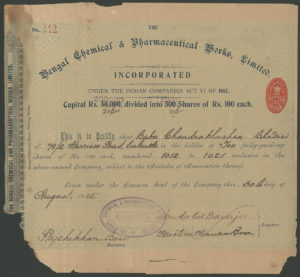 No. 112
THE
Bengal Chemical & Pharmaceutical Works, Limited.
INCORPORATED
UNDER THE INDIAN COMPANIES ACT VI OF 1882.
Capital Rs. 50,000, divided into 500 Shares of Rs. 100 each.
This is to Certify that Babu Chandrabhushan Bhaduri
of 79/2 Harrison Road, Calcutta is the holder of Ten fully-paid-up
shares of Rs. 100 each, numbered 1012 to 1021 inclusive in the
above-named Company, subject to the Articles of Association thereof.
Given under the Common Seal of the Company this 30th day
of August 1905
Directors.
Rajshekhar Bose
Secretary.
THE BENGAL CHEMICAL AND PHARMACEUTICAL WORKS, LIMITED.